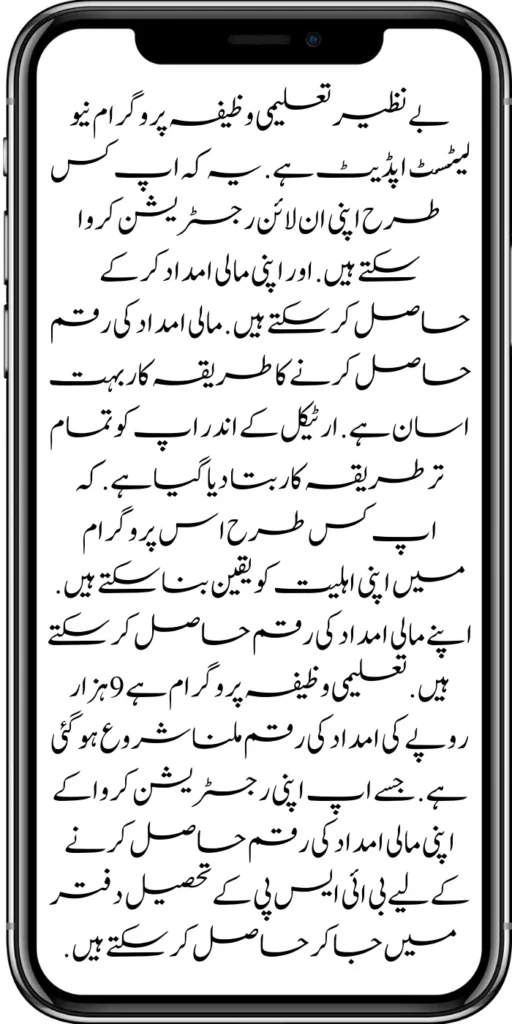 بے نظیر تعلیمی وظیفہ پروگرام نیو
لیٹسٹ اپڈیٹ ہے. یہ کہ اپ کس
طرح اپنی ان لائن رجسٹریشن کروا
سکتے ہیں. اور اپنی مالی امداد کر کے
حاصل کر سکتے ہیں. مالی امداد کی رقم
حاصل کرنے کا طریقہ کار بہت
اسان ہے. ارٹیکل کے اندر اپ کو تمام
تر طریقہ کار بتا دیا گیا ہے. کہ
اپ کس طرح اس پروگرام
میں اپنی اہلیت کو یقین بنا سکتے ہیں.
اپنے مالی امداد کی رقم حاصل کر سکتے
ہیں. تعلیمی وظیفہ پروگرام ہے 9 ہزار
روپے کی امداد کی رقم ملنا شروع ہو گئی
ہے. جسے اپ اپنی رجسٹریشن کروا کے
اپنی مالی امداد کی رقم حاصل کرنے
کے لیے بی ائی ایس پی کے تحصیل دفتر
میں جا کر حاصل کر سکتے ہیں.